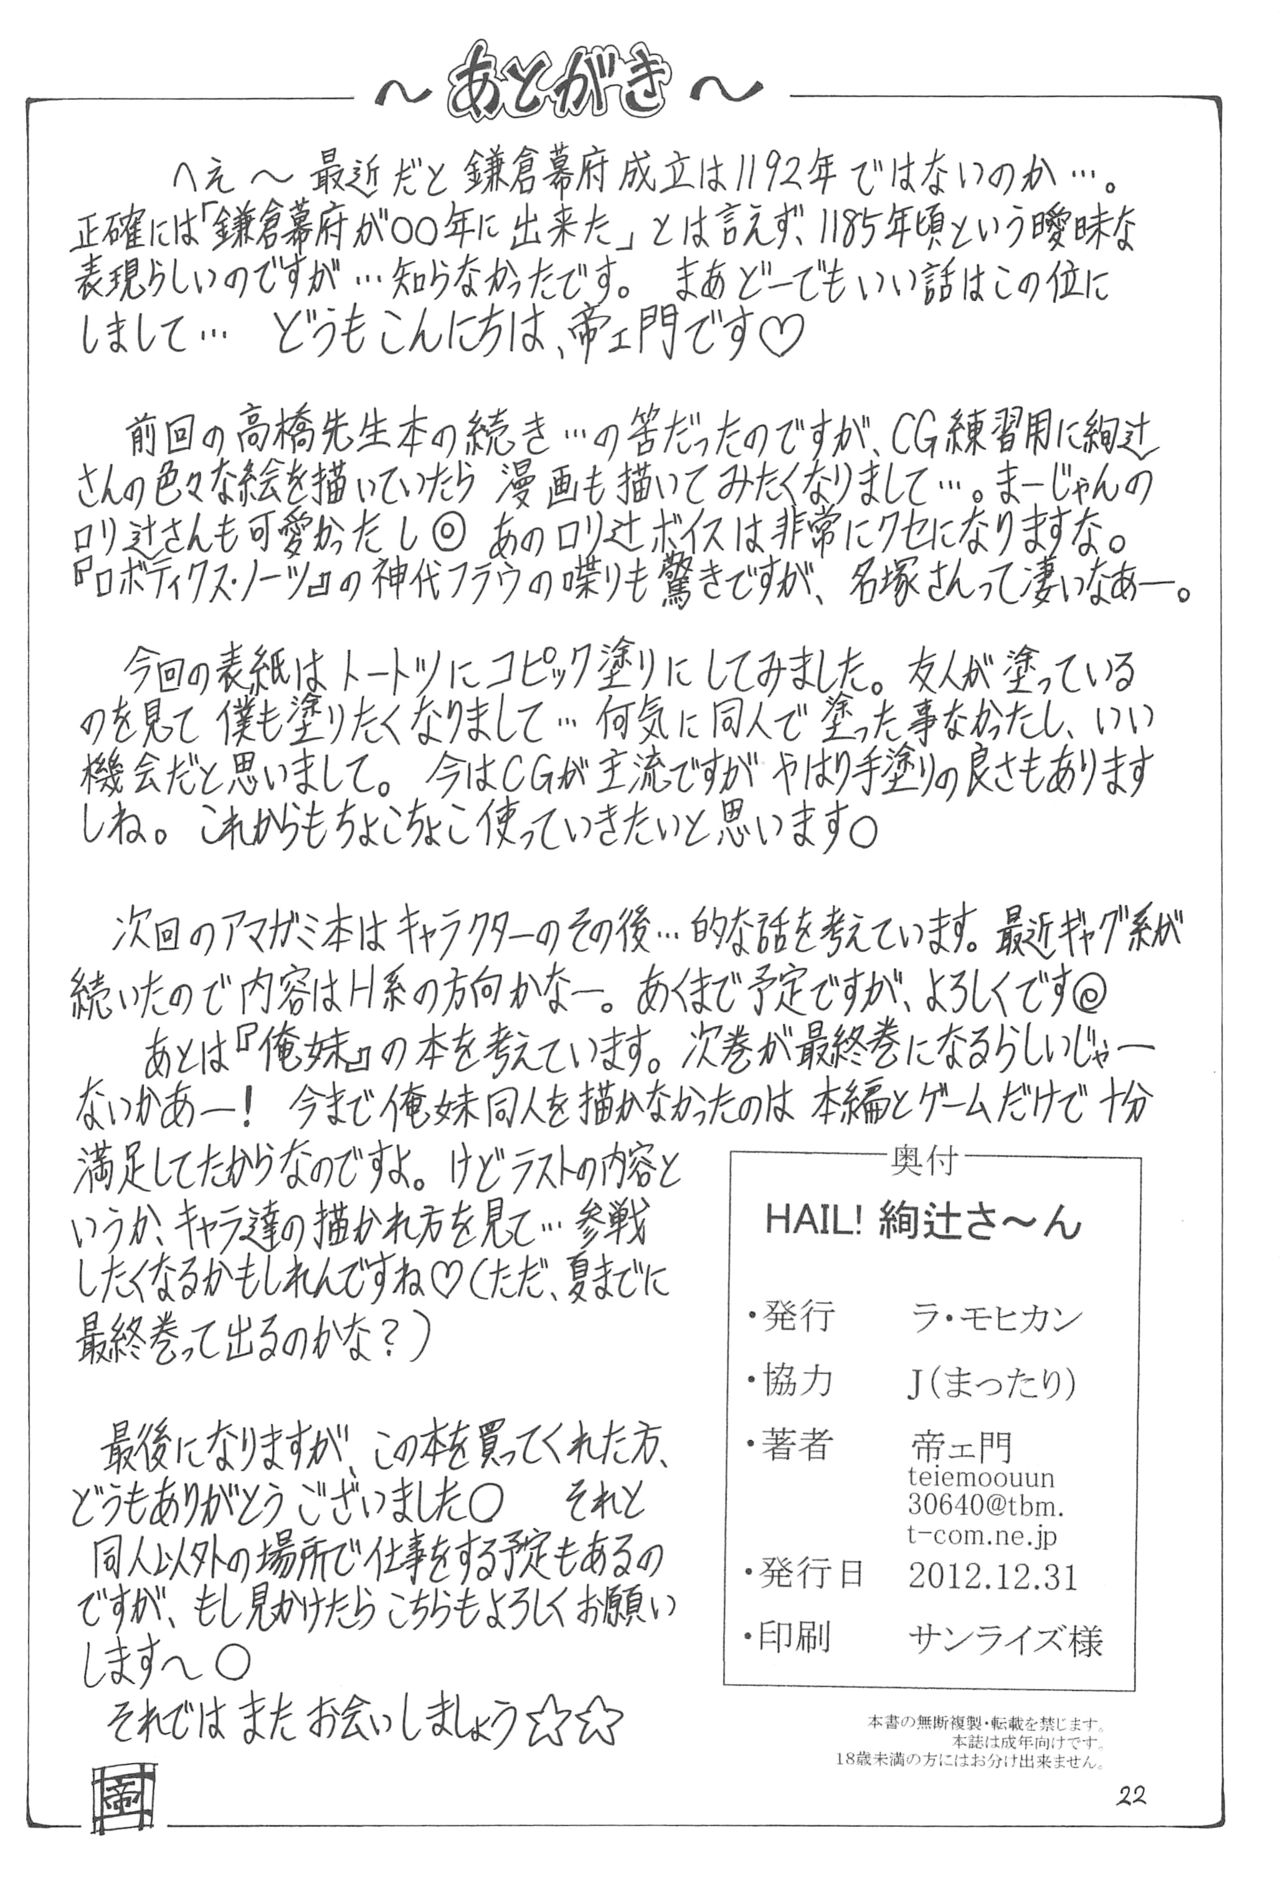 ～あとがき～
へえ～最近だと鎌倉幕府成立は1192年ではないのか…。
正確には「鎌倉幕府が○○年に出来た」とは言えず、1185年頃という曖昧な
表現らしいのですが…知らなかったです。 まあどーでもいい話はこの位に
しまして… どうもこんにちは、帝ェ門です♡
前回の高橋先生本の続き…の筈だったのですが、CG練習用に絢辻
さんの色々な絵を描いていたら漫画も描いてみたくなりまして…。まーじゃんの
ロリ辻さんも可愛かったし◎ あのロリ辻ボイスは非常にクセになりますな。
『ロボティクス・ノーツ』の神代フラウの喋りも驚きですが、名塚さんって凄いなあー。
今回の表紙はトートツにコピック塗りにしてみました。友人が塗っている
のを見て僕も塗りたくなりまして…何気に同人で塗った事なかったし、いい
機会だと思いまして。 今はCGが主流ですがやはり手塗りの良さもあります
しね。これからもちょこちょこ使っていきたいと思います○
次回のアマガミ本はキャラクターのその後…的な話を考えています。最近ギャグ系が
続いたので内容はH系の方向かなー。あくまで予定ですが、よろしくです@
あとは『俺妹』の本を考えています。次巻が最終巻になるらしいじゃー
ないかあー! 今まで俺妹同人を描かなかったのは本編とゲームだけで十分
満足してたからなのですよ。けどラストの内容と
いうか、キャラ達の描かれ方を見て…参戦
したくなるかもしれんですね♡(ただ、夏までに
最終巻って出るのかな?)
最後になりますが、この本を買ってくれた方、
どうもありがとうございました○ それと
同人以外の場所で仕事をする予定もあるの
ですが、もし見かけたらこちらもよろしくお願い
します～○
それではまたお会いしましょう☆☆
帝
奥付
HAIL! 絢辻さ～ん
・発行 ラ・モヒカン
・協力 J(まったり)
・著者 帝ェ門
teiemoouun
30640@tbm.
t-com.ne.jp
・発行日 2012.12.31
・印刷 サンライズ様
本書の無断複製・転載を禁じます。
本誌は成年向けです。
18歳未満の方にはお分け出来ません。
22